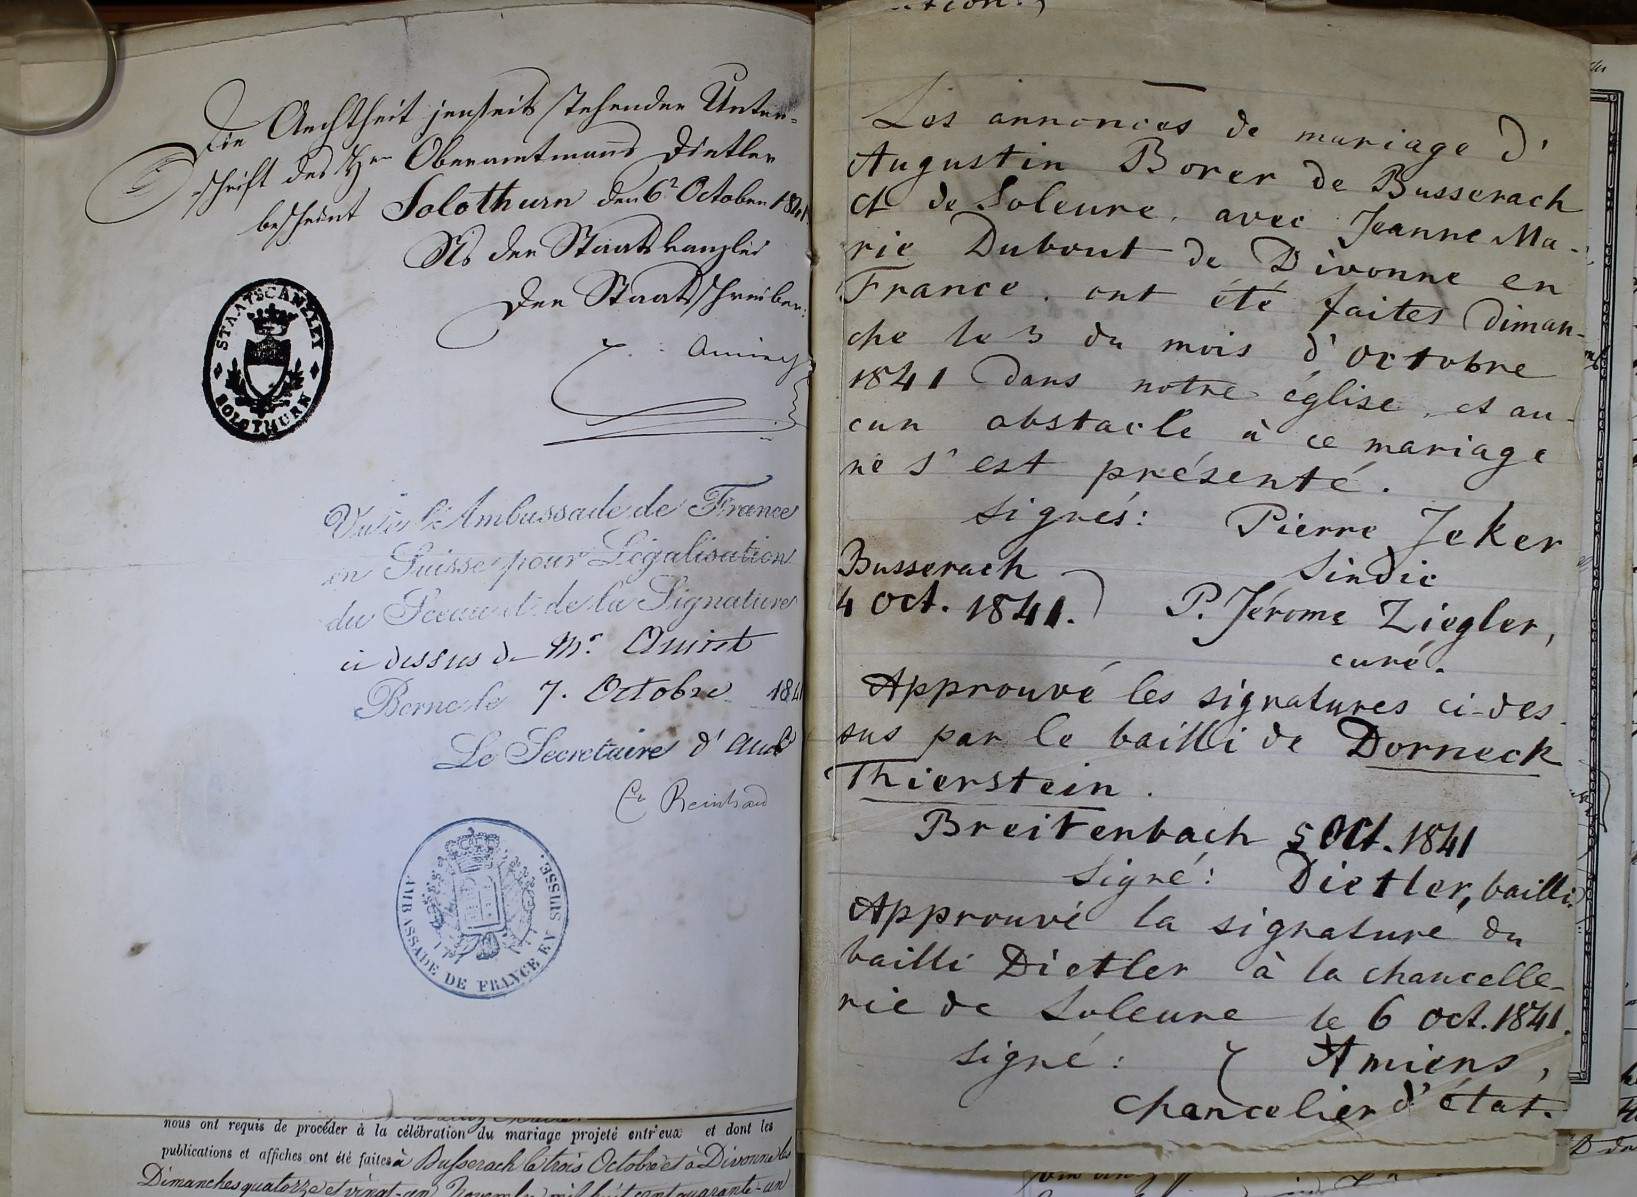 Die Aechtheit jenseits stehender Unter=
schrift des Hrn Oberamtmanns Dietler
bescheint Solothurn den 6. October 1841
Der Staatsschreiber:
STAATSCANZLEY
SOLOTHURN
Vu à l'Ambassade de France
en Suisse pour Légalisation
du Sceau et de la Signature
ci dessus de Mr. Amiet
Berne le 7. Octobre 1841
Le Secretaire d'Amb
AMBASSADE DE FRANCE EN SUISSE.
nous ont requis de procéder à la célébration du mariage projeté entr'eux et dont les
publications et affiches ont été faites à Busserach le trois Octobre et à Divonne les
Dimanches quatorze et vingt-un Novembre mil huit cent quarante-un
Les annonces de mariage d'
Augustin Borer de Busserach
et de Soleure, avec Jeanne Ma-
rie Dubout de Divonne en
France, ont été faites diman-
che le 3 du mois d'octobre
1841 dans notre église, et au-
cun obstacle à ce mariage
ne s'est présenté.
signés: Pierre Jeker
Sindic
Busserach
4 oct. 1841.) P. Jérome Ziegler,
curé.
Approuvé les signatures ci-des-
sus par le bailli de Dorneck
Thierstein.
Breitenbach 5 oct. 1841
signé: Dietler, bailli.
Approuvé la signature du
bailli Dietler à la chancelle-
rie de Soleure le 6 oct. 1841.
signé: Amiens,
chancelier d'état.